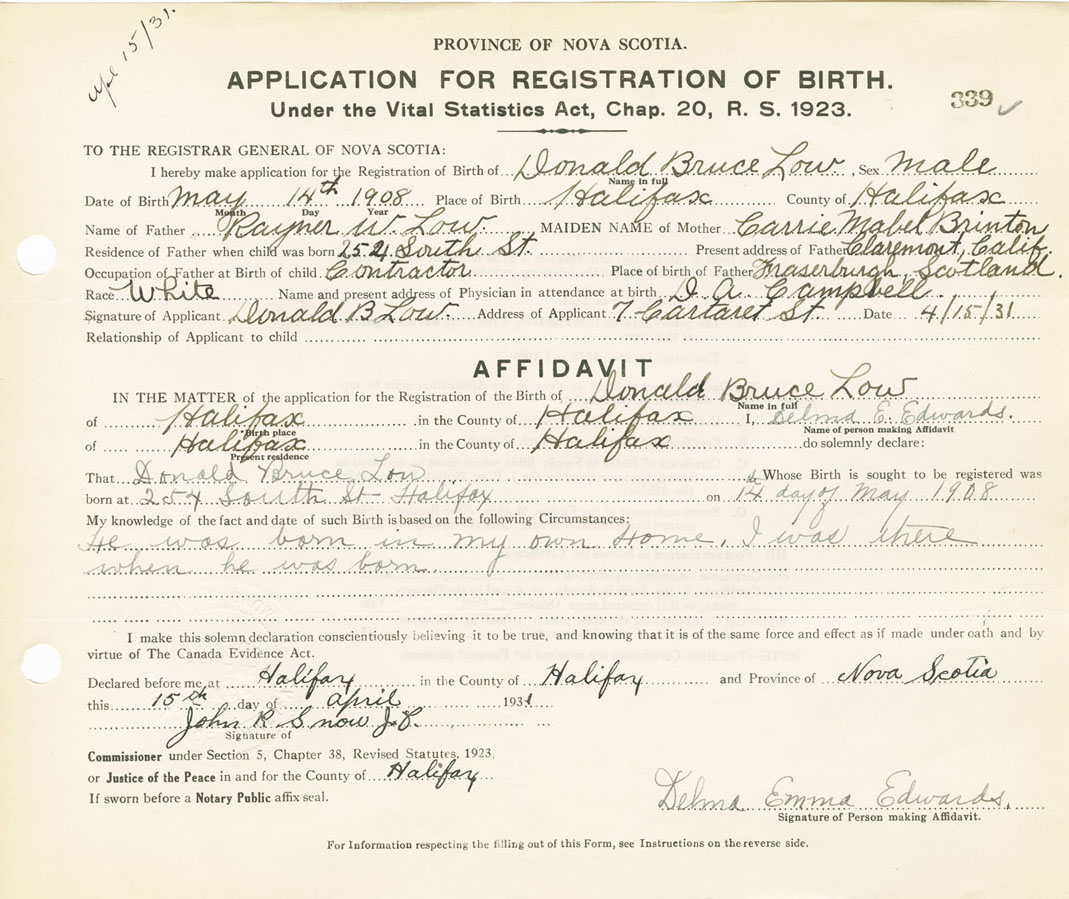 Apl 15/31.
PROVINCE OF NOVA SCOTIA.
APPLICATION FOR REGISTRATION OF BIRTH.
339
Under the Vital Statistics Act, Chap. 20, R. S. 1923.
TO THE REGISTRAR GENERAL OF NOVA SCOTIA:
I hereby make application for the Registration of Birth of Donald Bruce Low, Sex Male
Name in full
Date of Birth May 14th 1908 Place of Birth Halifax County of Halifax
Month Day Year
Name of Father Rayner W. Low. MAIDEN NAME of Mother Carrie Mabel Brinton
Residence of Father when child was born 254 South St. Present address of Father Claremont, Calif.
Occupation of Father at Birth of child Contractor Place of birth of Father Fraserburgh, Scotland.
Race White Name and present address of Physician in attendance at birth D. A. Campbell
Signature of Applicant Donald B Low. Address of Applicant 7 Cartaret St. Date 4/15/31
Relationship of Applicant to child
AFFIDAVIT
IN THE MATTER of the application for the Registration of the Birth of Donald Bruce Low
Name in full
of Halifax in the County of Halifax I, Delma E. Edwards.
Birth place Name of person making Affidavit
of Halifax in the County of Halifax do solemnly declare:
Present residence
That Donald Bruce Low Whose Birth is sought to be registered was
born at 254 South St Halifax on 14th day of May 1908
My knowledge of the fact and date of such Birth is based on the following Circumstances:
He was born in my own Home. I was there
when he was born
I make this solemn declaration conscientiously believing it to be true, and knowing that it is of the same force and effect as if made under oath and by
virtue of The Canada Evidence Act.
Declared before me at Halifax in the County of Halifax and Province of Nova Scotia
this 15th day of April 1931
John R. Snow J.P.
Signature of
Commissioner under Section 5, Chapter 38, Revised Statutes, 1923,
or Justice of the Peace in and for the County of Halifax
If sworn before a Notary Public affix seal.
Delma Emma Edwards.
Signature of Person making Affidavit.
For Information respecting the filling out of this Form, see Instructions on the reverse side.